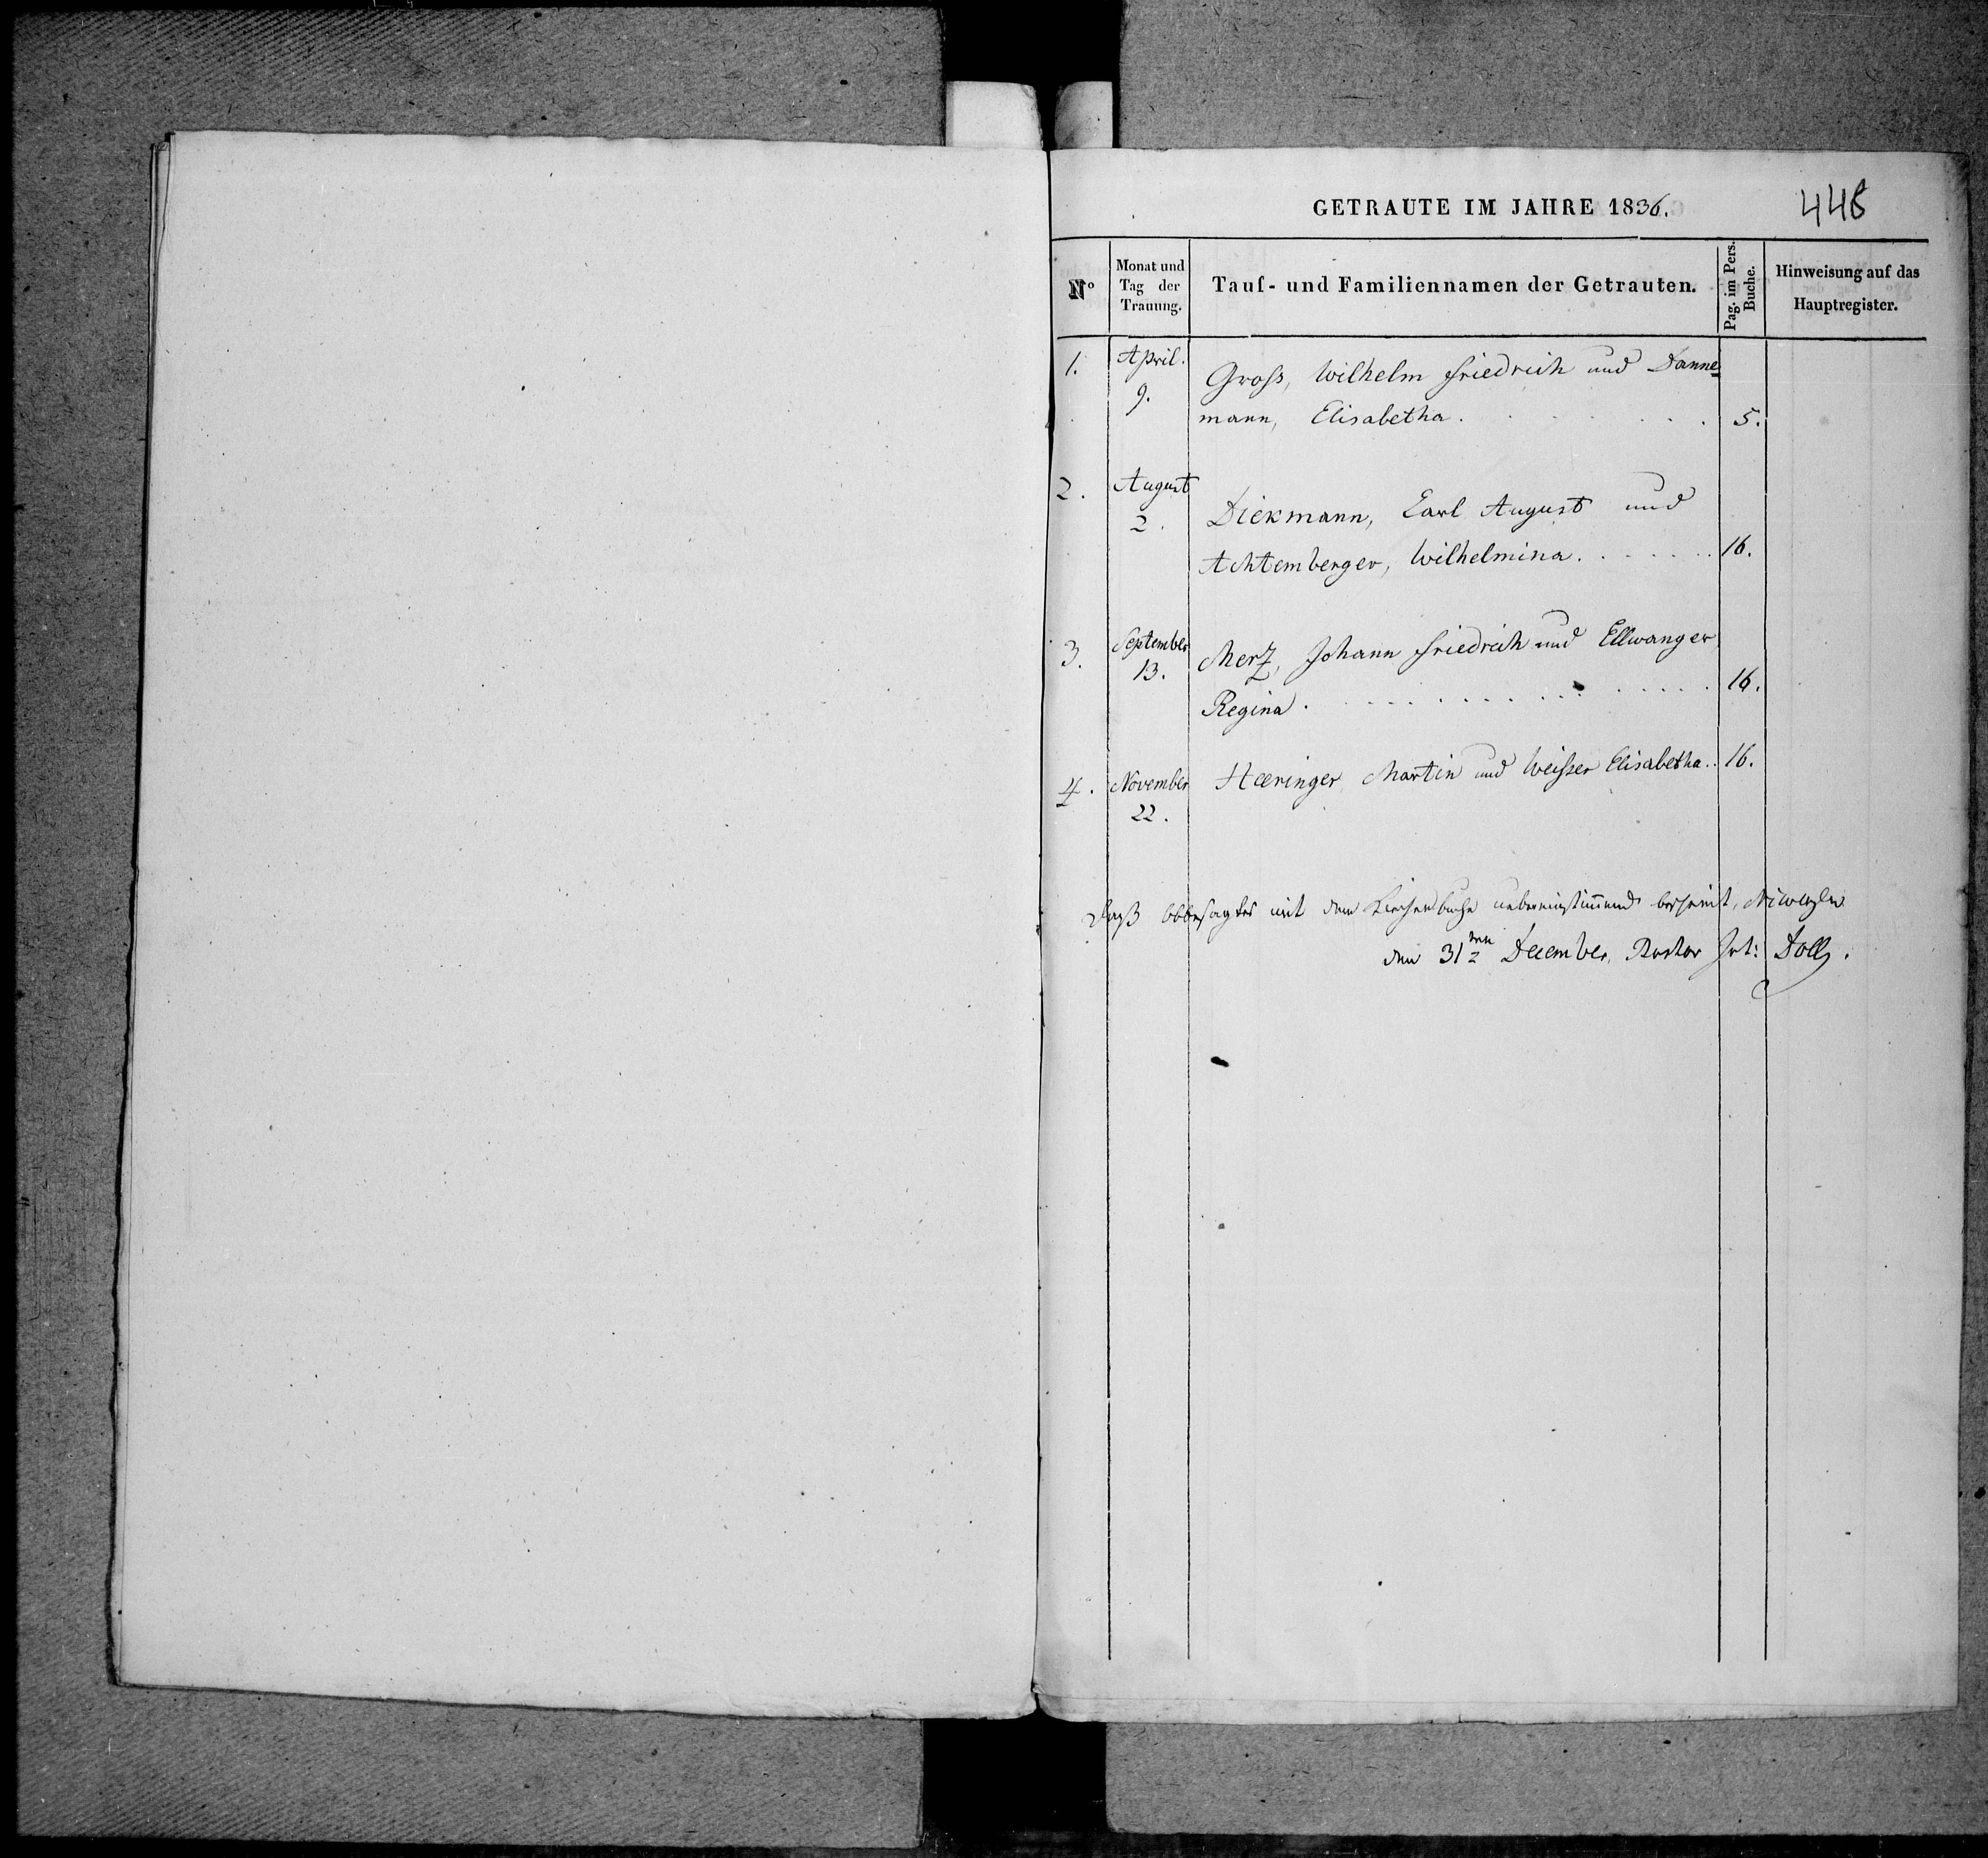 GETRAUTE IM JAHRE 1836.
448
Nº
Monat und Tag der Trauung.
Tauf- und Familiennamen der Getrauten.
Pag. im Pers. Buche.
Hinweisung auf das Hauptregister.
1. April. 9. Groß, Wilhelm Friedrich und Danne-
mann, Elisabetha. 5.
2. August 2. Diekmann, Carl August und
Achtemberger, Wilhelmina. 16.
3. September 13. Merz, Johann Friedrich und Ellwanger,
Regina. 16.
4. November 22. Haeringer, Martin und Weißer Elisabetha. 16.
Daß obbesagtes mit dem Kirchenbuche uebereinstimmend bescheint,
den 31ten December, Pastor Frt: Doll.